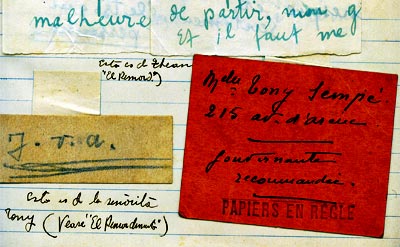 malheure de partir, mon g
Et il faut me
Esto es de
("El Remord")
J. v. a.
Esto es de la señorita
Tony (Vease "El Remordimiento")
Mdes Tony Sempé
215 av. d'
gouvernante
recommandée.
PAPIERS EN RÈGLE